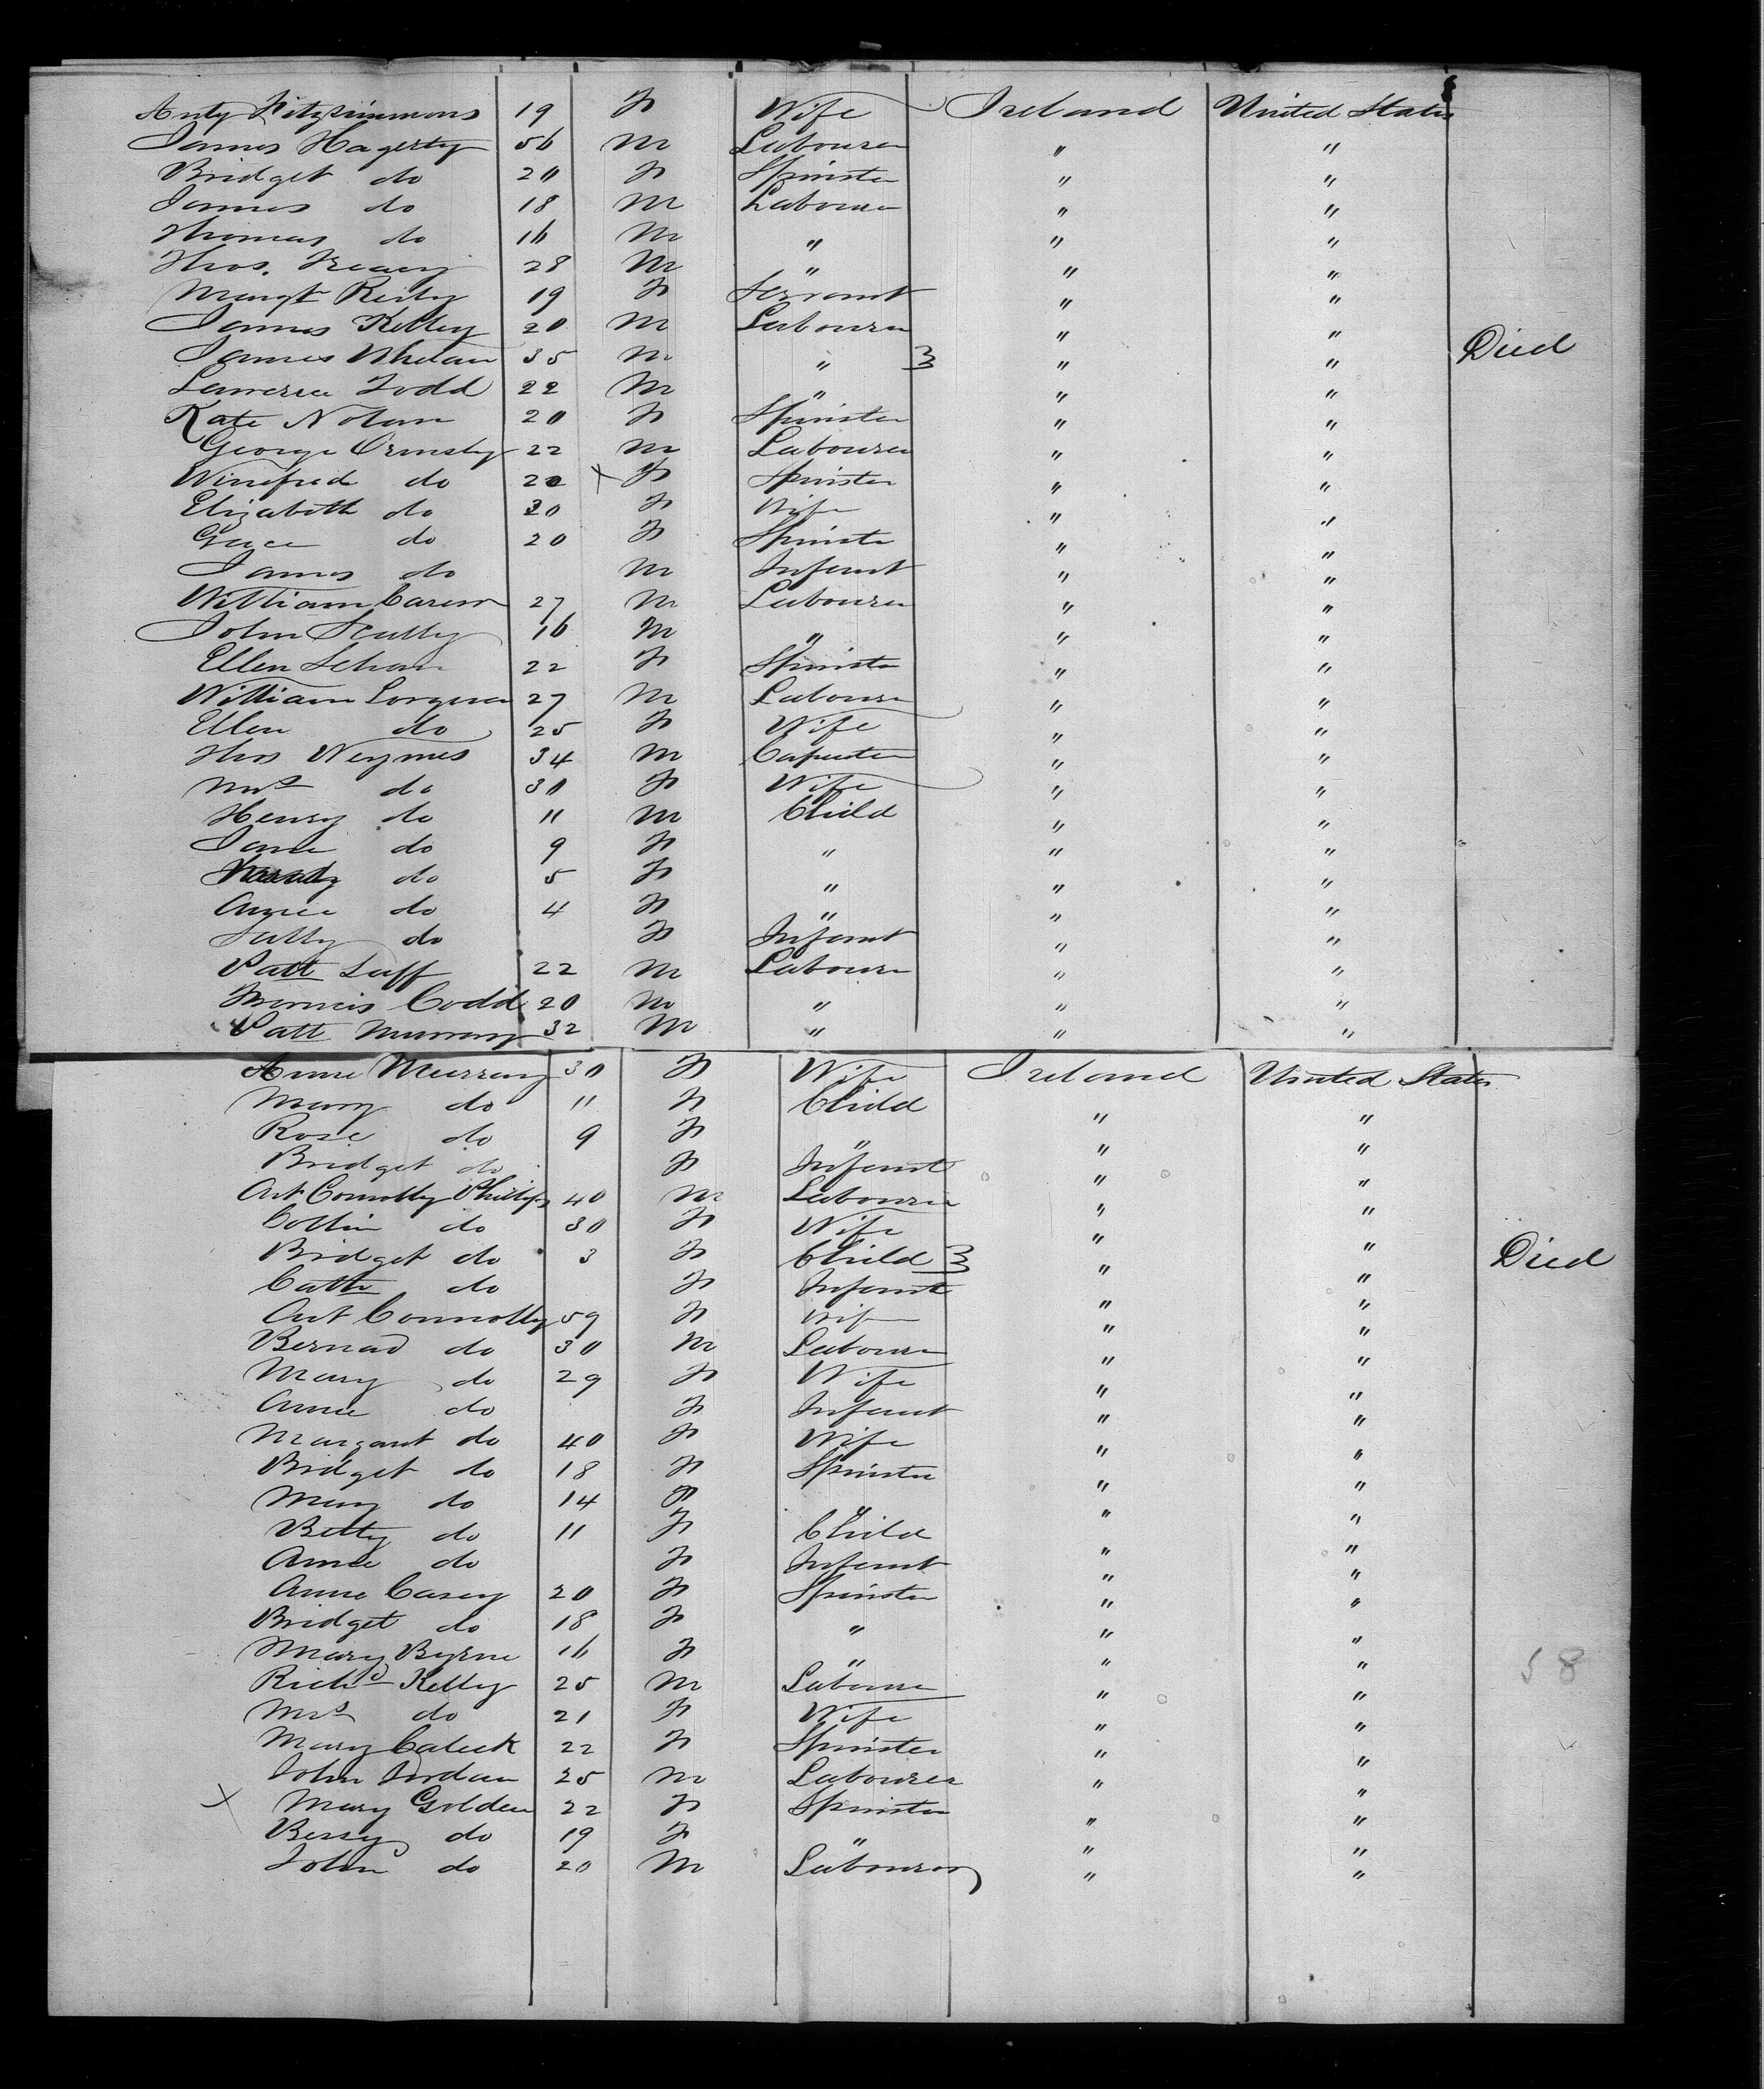 Anty Fitzsimmons 19 F Wife Ireland United States
James Hagerty 56 M Labourer " "
Bridget do 20 F Spinster " "
James do 18 M Labourer " "
Thomas do 16 M " " "
Thos. 28 M " " "
Margt Reily 19 F Servant " "
James Kelley 20 M Labourer " "
James Whelan 35 M " 3 " " Died
Lawrence Todd 22 M " " "
Kate Nolan 20 F Spinster " "
George Ormsby 22 M Labourer " "
Winefred do 22 X F Spinster " "
Elizabeth do 30 F Wife " "
Grace do 20 F Spinster " "
James do M Infant " "
William Carew 27 M Labourer " "
John Scully 16 M " " "
Ellen 22 F Spinster " "
William 27 M Labourer " "
Ellen do 25 F Wife " "
Thos Weymes 34 M Carpenter " "
Mrs do 30 F Wife " "
Henry do 11 M Child " "
Jane do 9 F " " "
do 5 F " " "
Annie do 4 F " " "
Sally do F Infant " "
Patt Luff 22 M Labourer " "
Francis Codd 20 M " " "
Patt Murray 32 M " " "
Anne Murray 30 F Wife Ireland United States
Mary do 11 F Child " "
Rose do 9 F " " "
Bridget do F Infant " "
Ant Connolly Phillips 40 M Labourer " "
Collin do 30 F Wife " "
Bridget do 3 F Child 3 " " Died
Cath do F Infant " "
Ant Connolly 59 F Wife " "
Bernad do 30 M Labourer " "
Mary do 29 F Wife " "
Anne do F Infant " "
Margaret do 40 F Wife " "
Bridget do 18 F Spinster " "
Mary do 14 F " " "
Betty do 11 F Child " "
Anne do F Infant " "
Anne Casey 20 F Spinster " "
Bridget do 18 F " " "
Mary Byrne 16 F " " "
Richd Kelly 25 M Labourer " " 58
Mrs do 21 F Wife " "
Mary Caleck 22 F Spinster " "
John Jordan 25 M Labourer " "
X Mary Golden 22 F Spinster " "
Bessy do 19 F " " "
John do 20 M Labourer " "